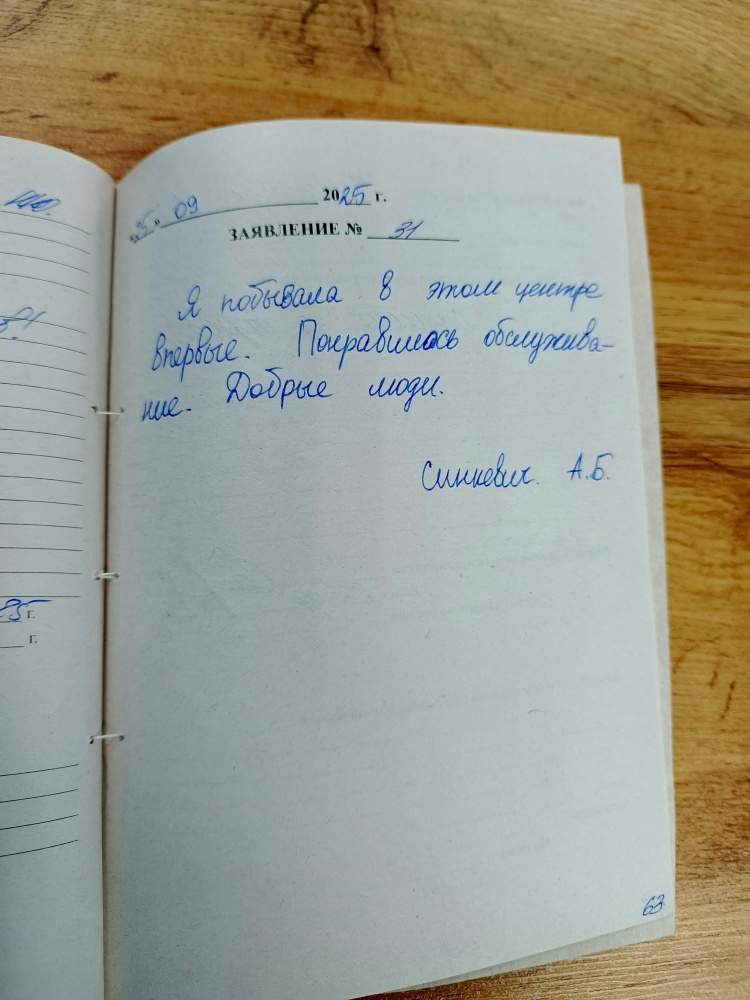 «25» 09 2025 г.
ЗАЯВЛЕНИЕ № 31
Я побывала в этом центре
впервые. Понравилось обслужива-
ние. Добрые люди.
Синкевич. А.Б.
25 г.
г.
63